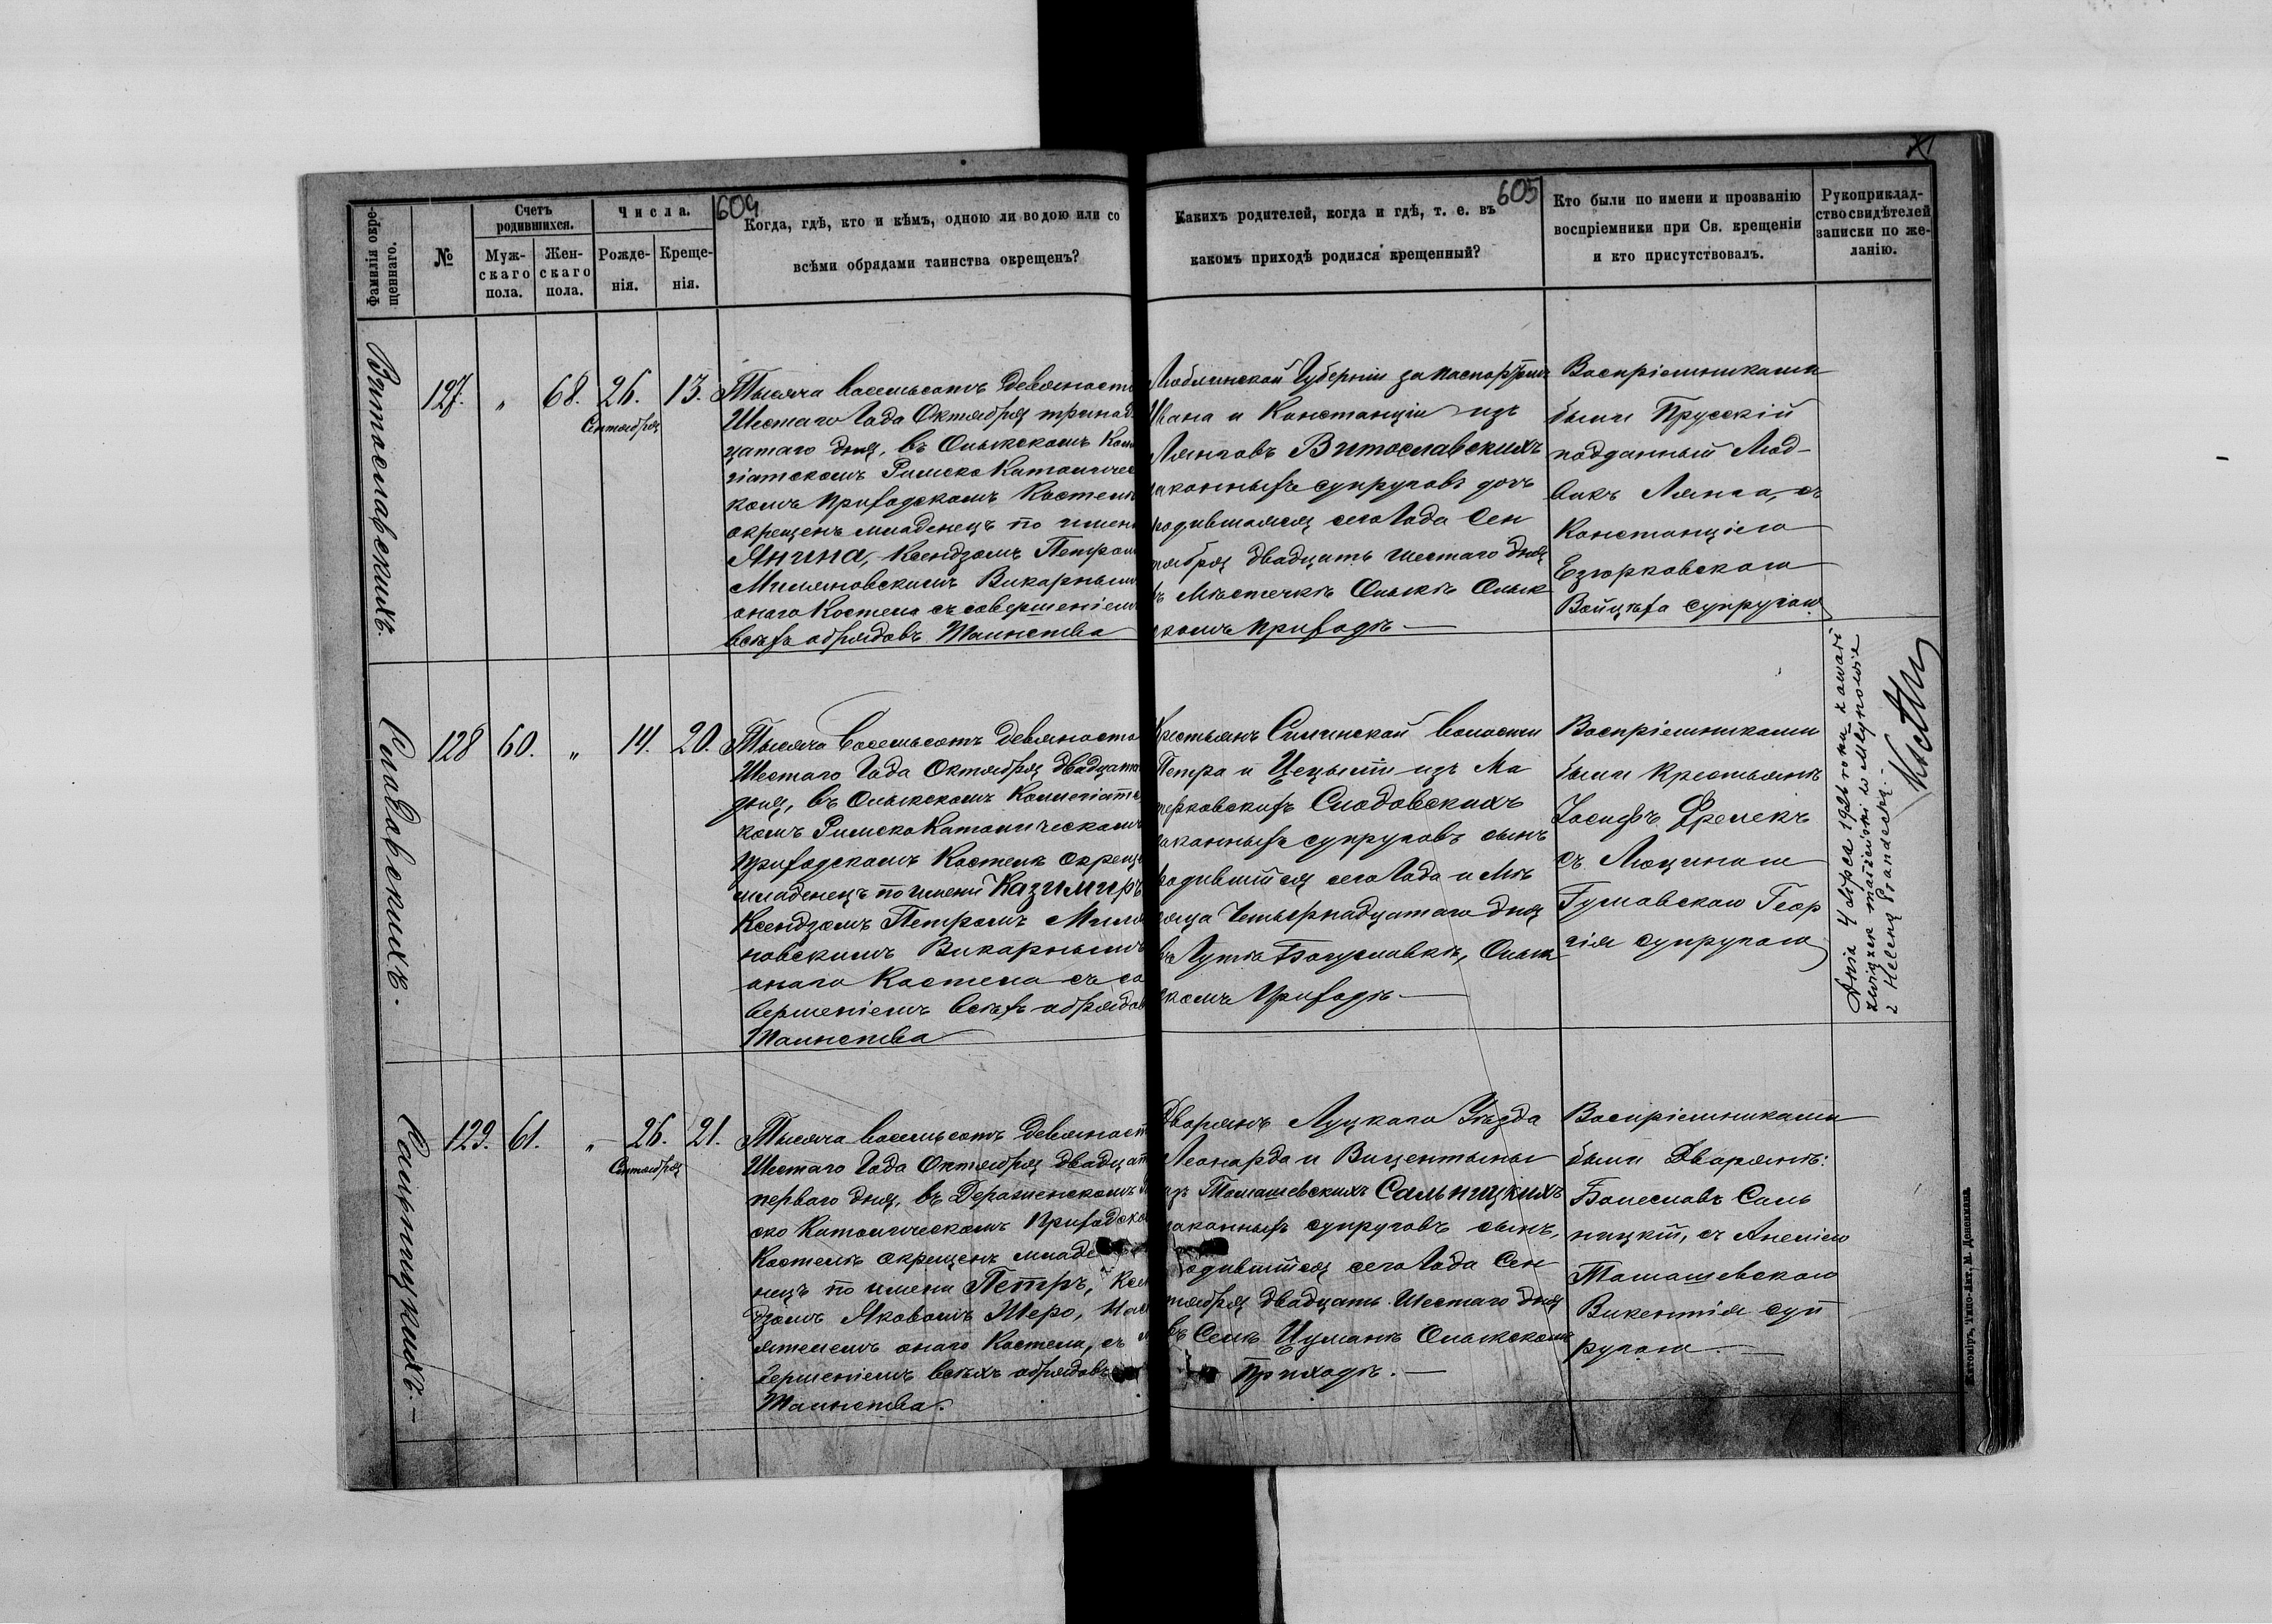 604
605
XI
Фамилія окре-
щеннаго.
№
Счетъ
родившихся.
Муж-
скаго
пола.
Жен-
скаго
пола.
Числа.
Рожде-
нія.
Креще-
нія.
Когда, гдѣ, кто и кѣмъ, одною ли водою или со
всѣми обрядами таинства окрещенъ?
Какихъ родителей, когда и гдѣ, т. е. въ
какомъ приходѣ родился крещенный?
Кто были по имени и прозванію
воспріемники при Св. крещеніи
и кто присутствовалъ.
Рукоприклад-
ство свидѣтелей
записки по же-
ланію.
Витославскихъ.
127. „ 68. 26. 13.
Сентября
Тысяча восемьсотъ девяносто
Шестаго Года Октября тринад
цатаго дня, въ Олыкскомъ Кол
гіатскомъ Римско Католичес
комъ приходскомъ Костелѣ
окрещенъ младенецъ по имени
Янина, Ксендзомъ Петром
Миляновскимъ Викарным
онаго Костела съ совершеніем
всѣхъ обрядовъ Таинства
Люблинской Губерніи за паспортомъ
Ивана и Констанціи изъ
Лянговъ Витославскихъ
законныхъ супруговъ дочь
родившаяся сего Года Сен
тября двадцать шестаго дня
въ Мѣстечкѣ Олыкѣ Олык
скомъ приходѣ. —
Воспріемниками
были Прусскій
подданный Люд-
викъ Лянга, съ
Констанціею
Езюрковскою
Войцѣха супругою
Слядовскихъ.
128 60. „ 14. 20.
Тысяча восемьсотъ девяносто
Шестаго Года Октября двадцат
дня, въ Олыкскомъ Коллегіатс
комъ Римско Католическомъ
приходскомъ Костелѣ окрещ
младенецъ по имени Казимиръ
Ксендзомъ Петромъ Миля
новскимъ Викарнымъ
онаго Костела съ со
вершеніемъ всѣхъ обрядов
Таинства
Крестьянъ Силинской волости
Петра и Цецыліи изъ Ма
церковскихъ Слодовскихъ
законныхъ супруговъ сынъ
родившійся сего Года и Мѣ
сяца Четырнадцатаго дня
въ Гутѣ Богуславкѣ, Олык
скомъ приходѣ. —
Воспріемниками
были крестьянѣ
Іосифъ Фрелекъ
съ Люциною
Гумовскою Геор
гія супругою
Dnia 4 lipca 1921 roku zawarł
związek małżeński w Młynowie
z Heleną
Сальницкихъ. —
129. 61. „ 26. 21.
Сентября
Тысяча восемьсотъ девяност
Шестаго Года Октября двадцат
перваго дня, въ Деражненскомъ
ско Католическомъ приходско
Костелѣ окрещенъ младе
нецъ по имени Петръ, Ксен
дзомъ Яковомъ Меро, Нас
ятелемъ онаго Костела, съ
вершеніемъ всѣхъ обрядовъ
Таинства.
Дворянъ Луцкаго Уѣзда
Леонарда и Вицентыны
изъ Томашевскихъ Сальницкихъ
законныхъ супруговъ сынъ,
родившійся сего Года Сен
тября двадцать Шестаго дня
въ Селѣ Цуманѣ Олыкскомъ
приходѣ. —
Воспріемниками
были Дворянѣ:
Болеславъ Саль
ницкій, съ Анеліею
Томашевскою
Викентія суп
ругою —
Житоміръ, Типо-Лит. М. Дененмана.